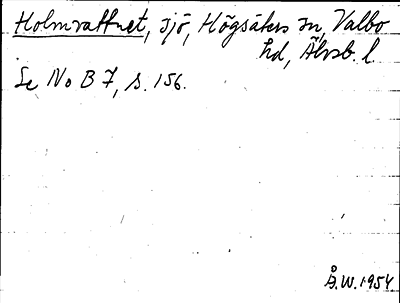 Holmvattnet, sjö, Högsäters sn, Valbo
hd, Älvsb. l.
Se No B 7, s. 156.
Å.W. 1954